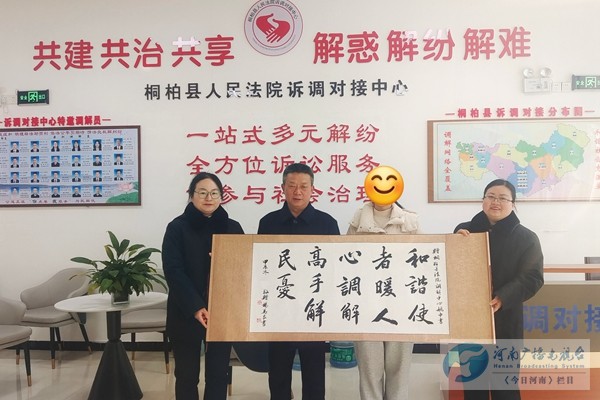 桐柏县人民法院诉调对接中心
共建 共治 共享
解惑 解纷 解难
桐柏县人民法院诉调对接中心
诉调对接中心特邀调解员
桐柏县诉调对接分布图
调解网络全覆盖
一站式多元解纷
全方位诉讼服务
参与社会治理
和諧使
者暖人
心調解
高手解
民憂
调对接
河南广播电视台
Henan Broadcasting System
《今日河南》栏目